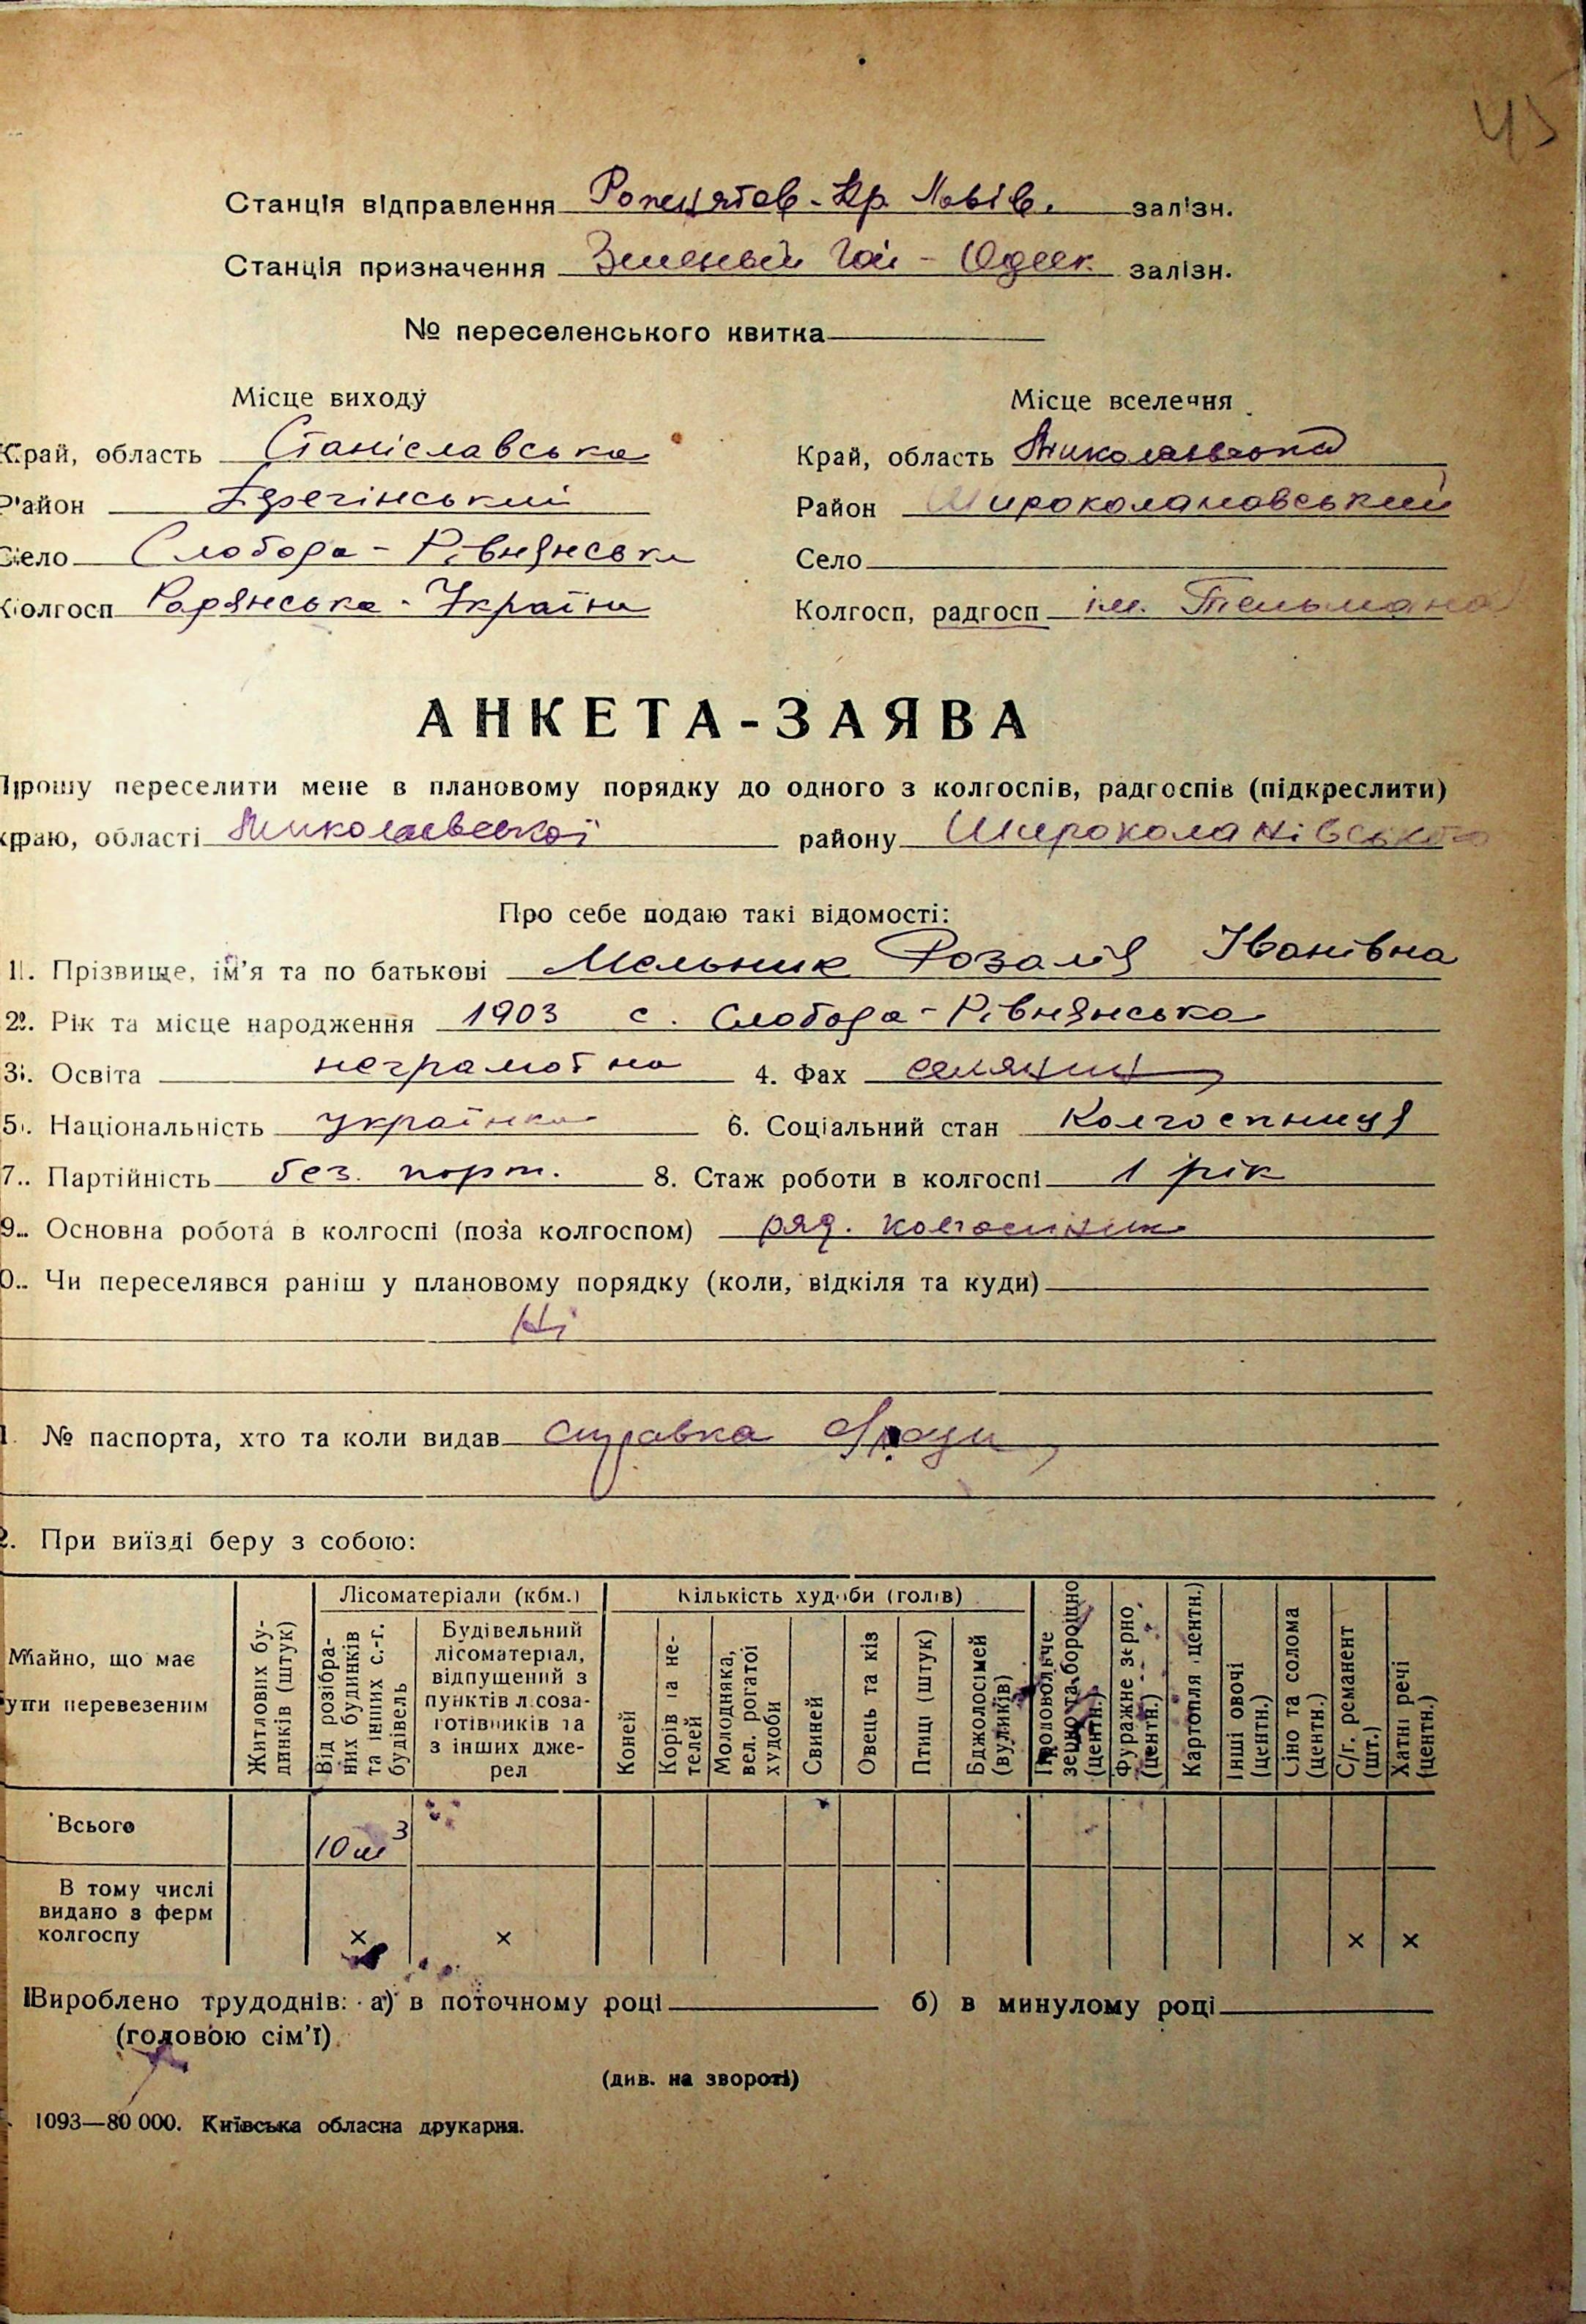 43
Станція відправлення Рожнятов-Кр. Львів. залізн.
Станція призначення Зеленый Гай - Одеск. залізн.
№ переселенського квитка
Місце виходу
Край, область Станіславська
Район Перегінський
Село Слобода-Рівнянська
Колгосп Радянська-Україна
Місце вселення
Край, область Миколаевська
Район Широколановський
Село
Колгосп, радгосп ім. Тельмана
АНКЕТА-ЗАЯВА
Прошу переселити мене в плановому порядку до одного з колгоспів, радгоспів (підкреслити)
краю, області Миколаевської району Широколанівського
Про себе подаю такі відомості:
1. Прізвище, ім'я та по батькові Мельник Розалія Іванівна
2. Рік та місце народження 1903 с. Слобода-Рівнянська
3. Освіта неграмотна 4. Фах селянин
5. Національність українка 6. Соціальний стан Колгоспниця
7. Партійність без. парт. 8. Стаж роботи в колгоспі 1 рік
9. Основна робота в колгоспі (поза колгоспом) ряд. колгоспник
0. Чи переселявся раніш у плановому порядку (коли, відкіля та куди)
Ні
1. № паспорта, хто та коли видав справка с/ради
2. При виїзді беру з собою:
Майно, що має бути перевезеним
Житлових будинків (штук)
Лісоматеріали (кбм.)
Від розібраних будинків та інших с.-г. будівель
Будівельний лісоматеріал, відпущений з пунктів лісозаготівників та з інших джерел
Кількість худоби (голів)
Коней
Корів та нетелей
Молодняка, вел. рогатої худоби
Свиней
Овець та кіз
Птиці (штук)
Бджолосімей (вуликів)
Продовольче зерно та борошно (центн.)
Фуражне зерно (центн.)
Картопля (центн.)
Інші овочі (центн.)
Сіно та солома (центн.)
С/г. реманент (шт.)
Хатні речі (центн.)
Всього 10 м³
В тому числі видано з ферм колгоспу × × × ×
Вироблено трудоднів: а) в поточному році б) в минулому році
(головою сім'ї)
(див. на звороті)
1093—80 000. Київська обласна друкарня.